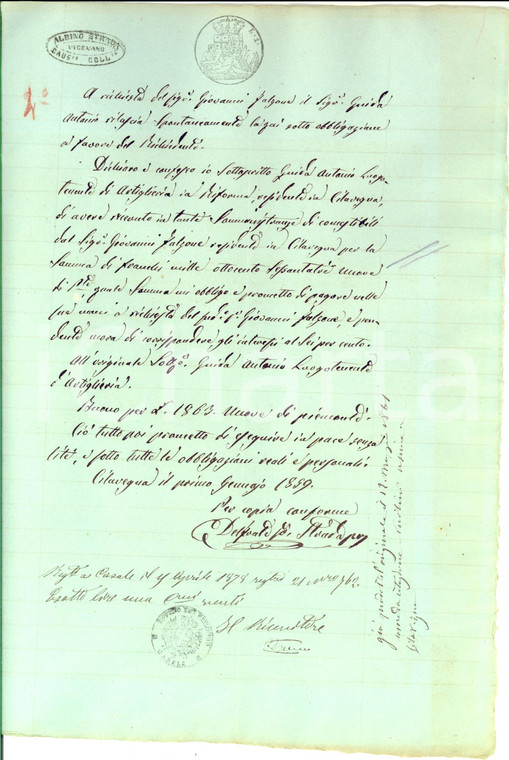 ALBINO STRADA
VIGEVANO
CAUS.º COLL.º
2º
A richiesta del sigr. Giovanni Falzone il Sigr. Guida
Antonio rilascia spontaneamente la qui sotto obbligazione
a favore del Richiedente.
Dichiaro e confesso io Sottoscritto Guida Antonio Luogo-
tenente di Artiglieria in Riforma, residente in Cilavegna,
di avere ricevuto in tante Somministranze di comestibili
dal Sigr. Giovanni Falzone residente in Cilavegna per la
Somma di franchi mille ottocento sessantatre nuove
di pte. quale Somma mi obbligo e prometto di pagare nelle
tre mesi a richiesta del pred. Sr. Giovanni Falzone e pen-
dente mora di corrispondere gli interessi al sei per cento.
All'originale Sotto. Guida Antonio Luogotenente
d'Artiglieria.
Buono per £. 1863. Nuove di piemonte.
Ciò tutto poi prometto di eseguire in pace senza
lite, e sotto tutte le obbligazioni reali e personali.
Cilavegna il primo Gennajo 1859.
Per copia conforme
Strada
Casale il 4 Aprile 1878
Esatto lire una
Il Ricevitore
CASALE
Cilavegna